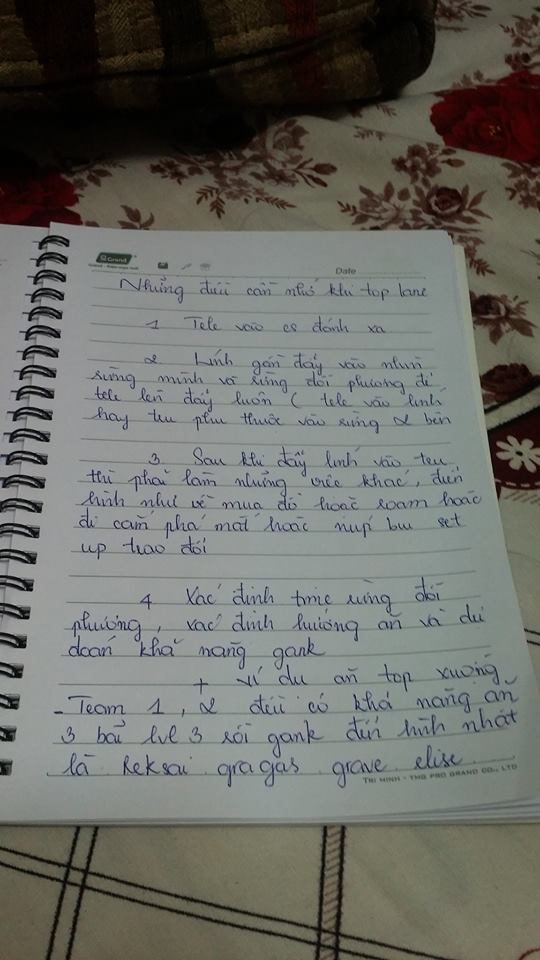 Grand
Date
Những điều cần nhớ khi top lane
1 Tele vào cs đánh xa
2 Lính gần đẩy vào nhưng
rừng mình và rừng đối phương đi
tele lên đẩy luôn ( tele vào lính
hay trụ phụ thuộc vào rừng 2 bên
3 Sau khi đẩy lính vào trụ
thì phải làm những việc khác, điển
hình như về mua đồ hoặc roam hoặc
đi cắm phá mắt hoặc núp bụi set
up trao đổi
4 Xác định rừng đối
phương, xác định hướng ăn và dự
đoán khả năng gank
+ ví dụ ăn top xuống
- Team 1, 2 đều có khả năng ăn
3 bãi lvl 3 rồi gank điển hình nhất
là Reksai gragas grave elise
TRI MINH - TMG PRO GRAND CO., LTD